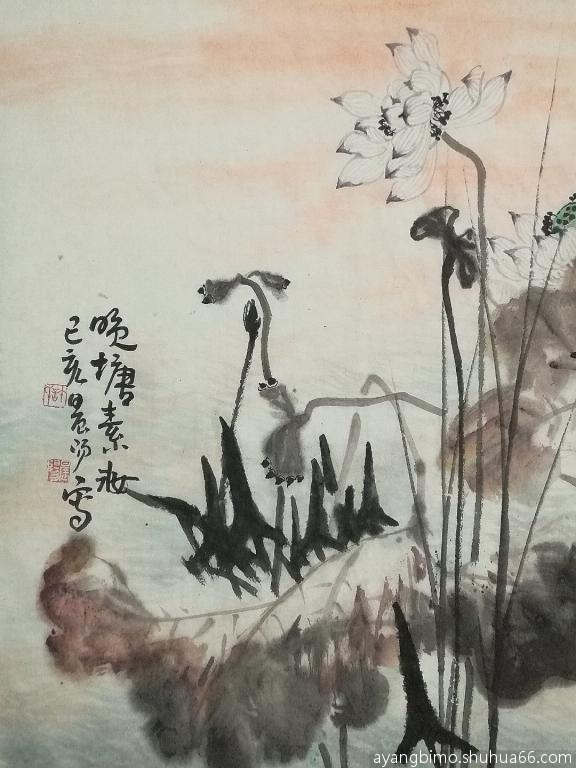 晚塘素妆
己亥晨阳写
ayangbimo.shuhua66.com